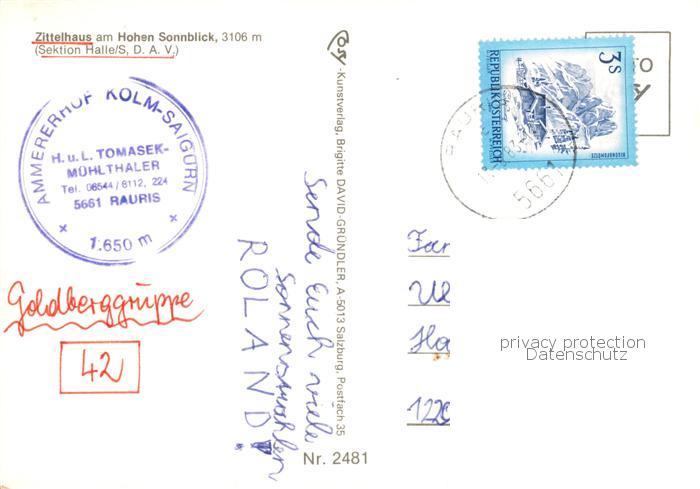 Zittelhaus am Hohen Sonnblick, 3106 m
(Sektion Halle/S, D. A. V.)
AMMERERHOF KOLM-SAIGURN
H. u. L. TOMASEK-
MÜHLTHALER
Tel. 06544/8112, 224
5661 RAURIS
1.650 m
Goldberggruppe
42
-Kunstverlag, Brigitte DAVID-GRÜNDLER, A-5013 Salzburg, Postfach 35
Nr. 2481
Sende Euch viele
Sonnenstrahlen
ROLAND!
3s
REPUBLIK ÖSTERREICH
BISCHOFSMÜTZE
5661
Fam
Ha
122
privacy protection
Datenschutz